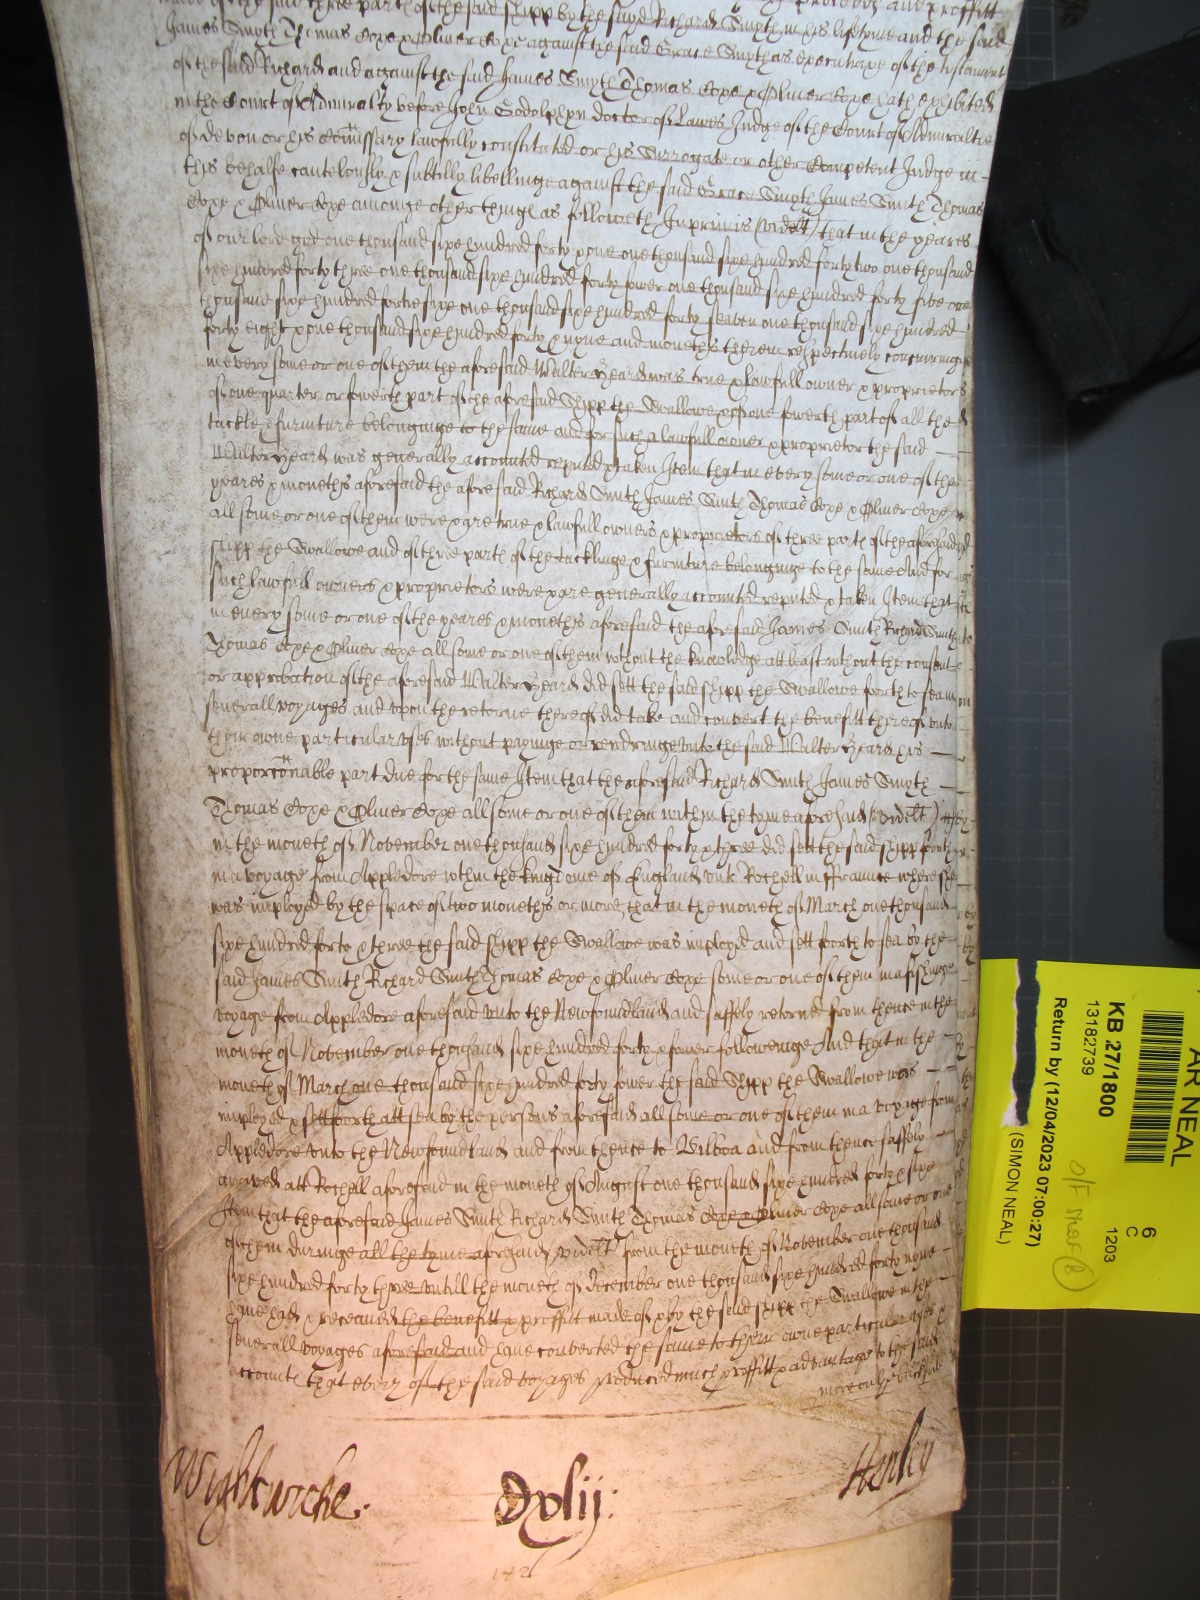 made of the said three part of the said shipp by the sayd Richard Smyth in his lifetyme and the said
James Smyth Thomas Cope & Oliver Cope against the said Grace Smyth as executrixe of the testament
of the said Richard and against the said James Smyth Thomas Cope & Oliver Cope hath exhibited
in the Court of Admiralty before John Godolphyn doctor of Lawes Judge of the Court of Admiraltie
of devon or his Comissary lawfully constituted or his Surrogate or other Competent Judge in
this behalfe cautelously & subtilly libellinge against the said Grace Smyth James Smith Thomas
Cope & Oliver Cope amonge other things as followeth Inprimis (videlt) that in the yeares
of our lord god one thousand sixe hundred forty & one one thousand sixe hundred forty two one thousand
sixe hundred forty three one thousand sixe hundred forty fower one thousand sixe hundred forty five one
thousand sixe hundred fortie sixe one thousand sixe hundred forty seaven one thousand sixe hundred
forty eight & one thousand sixe hundred forty & nyne and moneths therein respectively concurringe
in every some or one of them the aforesaid Walter Yeard was true & lawfull owner & proprietor
of one quarter or fowerth part of the aforesaid Shipp the Swallowe & of one fowerth part of all the
tackle & furniture belonginge to the same and for such a lawfull owner & proprietor the said
Walter Yeard was generally accounted reputed & taken Item that in every some or one of the
yeares & moneths aforesaid the aforesaid Richard Smith James Smith Thomas Cope & Oliver Cope
all some or one of them were & are true & lawfull owners & proprietors of three part of the aforesaid
shipp the Swallowe and of three part of the tacklinge & furniture belonginge to the same And for
such lawfull owners & proprietors were & are generally accounted reputed & taken Item that
in every some or one of the yeares & moneths aforesaid the aforesaid James Smith Richard Smith
Thomas Cope & Oliver Cope all some or one of them without the knowledge att least without the consent
or approbation of the aforesaid Walter Yeard did sett the said shipp the Swallowe forth to sea in
severall voyages and upon the retorne thereof did take and convert the benefitt thereof unto
their owne particular uses without payinge or rendringe unto the said Walter Yeard his
proporconable part due for the same Item that the aforesaid Richard Smith James Smyth
Thomas Cope & Oliver Cope all some or one of them within the tyme aforesaid (videlt)
in the moneth of November one thousand sixe hundred forty & three did sett the said shipp forth
in a voyage from Appledore within the kingdome of England unto Rochell in ffraunce where she
was imployed by the space of two moneths or more, that in the moneth of March one thousand
sixe hundred forty & three the said shipp the Swallowe was imployed and sett foorth to sea by the
said James Smith Richard Smith Thomas Cope & Oliver Cope some or one of them in a fishinge
voyage from Appledore aforesaid unto the Newfoundland and saffely retorned from thence in the
moneth of November one thousand sixe hundred forty & fower followeinge And that in the
moneth of March one thousand sixe hundred forty fower the said Shipp the Swallowe was
imployed & sett forth att sea by the persons aforesaid all some or one of them in a voyage from
Appledore unto the Newfoundland and from thence to Bilboa and from thence saffely
arrived att Rochell aforesaid in the moneth of August one thousand sixe hundred forty & sixe
Item that the aforesaid James Smith Richard Smith Thomas Cope & Oliver Cope all some or one
of them duringe all the tyme aforesaid (videlt) from the moneth of November one thousand
sixe hundred forty three untill the moneth of December one thousand sixe hundred forty nyne
have had & receaved the benefitt & proffitt made of & by the said shipp the Swallowe in the
severall voyages aforesaid and have converted the same to their owne particular uses &
accounts that every of the said voyages produced much proffitt & advantage to the said
Wightwicke.
Dxlij:
Henley
142
AR NEAL
KB 27/1800
13182739
Return by (12/04/2023 07:00:27)
(SIMON NEAL)
6
C
1203